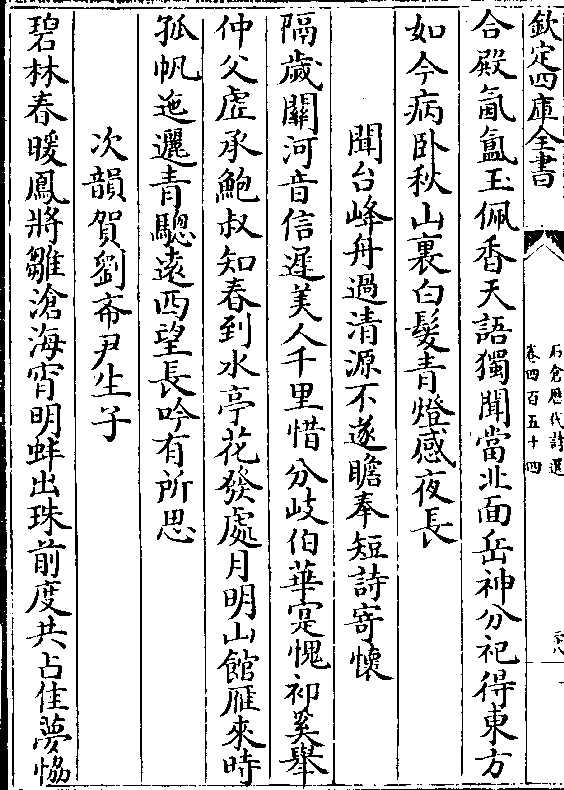 欽定四庫全書
石倉歷代詩選
卷四百五十四
合殿氤氳玉佩香天語獨聞當北面岳神分祀得東方
如今病卧秋山裏白髮青燈感夜長
聞台峰舟過清源不遂瞻奉短詩寄懷
隔歲關河音信遲美人千里惜分岐伯華寔愧祁奚舉
仲父虛承鮑叔知春到水亭花發處月明山館雁來時
孤帆迤邐青驄遠西望長吟有所思
次韻賀劉斎尹生子
碧林春暖鳳將雛滄海宵明蚌出珠前度共占佳夢恊